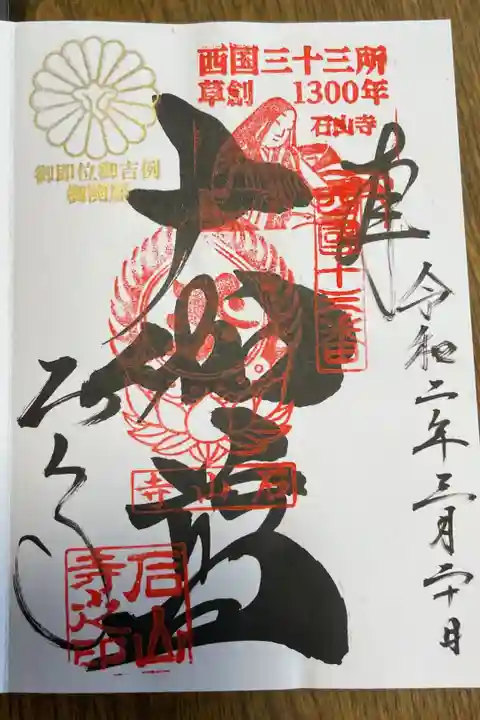 西国三十三所
草創 1300年
石山寺
御即位御吉例
奉
西國十三番
令和二年三月二十日
大伽藍
石山寺
石山寺
石山寺之印